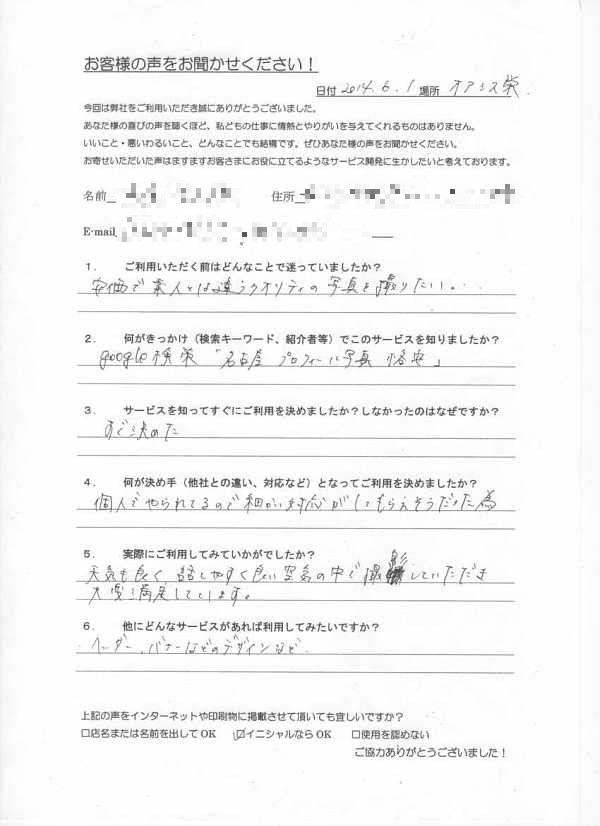 お客様の声をお聞かせください！
日付 2014.6.1 場所 オアシス栄
今回は弊社をご利用いただき誠にありがとうございました。
あなた様の喜びの声を聴くほど、私どもの仕事に情熱とやりがいを与えてくれるものはありません。
いいこと・悪いわるいこと、どんなことでも結構です。ぜひあなた様の声をお聞かせください。
お寄せいただいた声はますますお客さまにお役に立てるようなサービス開発に生かしたいと考えております。
名前 住所
E-mail
１． ご利用いただく前はどんなことで迷っていましたか？
安価で素人とは違うクオリティの写真を撮りたい。
２． 何がきっかけ（検索キーワード、紹介者等）でこのサービスを知りましたか？
google検索「名古屋 プロフィール写真 格安」
３． サービスを知ってすぐにご利用を決めましたか？しなかったのはなぜですか？
すぐ決めた
４． 何が決め手（他社との違い、対応など）となってご利用を決めましたか？
個人でやられてるので細かい対応がしてもらえそうだった為
５． 実際にご利用してみていかがでしたか？
天気も良く、話しやすく良い空気の中で撮影していただき
大変満足しています。
６． 他にどんなサービスがあれば利用してみたいですか？
ヘッダー、バナーなどのデザインなど
上記の声をインターネットや印刷物に掲載させて頂いても宜しいですか？
□店名または名前を出してOK ☑イニシャルならOK □使用を認めない
ご協力ありがとうございました！